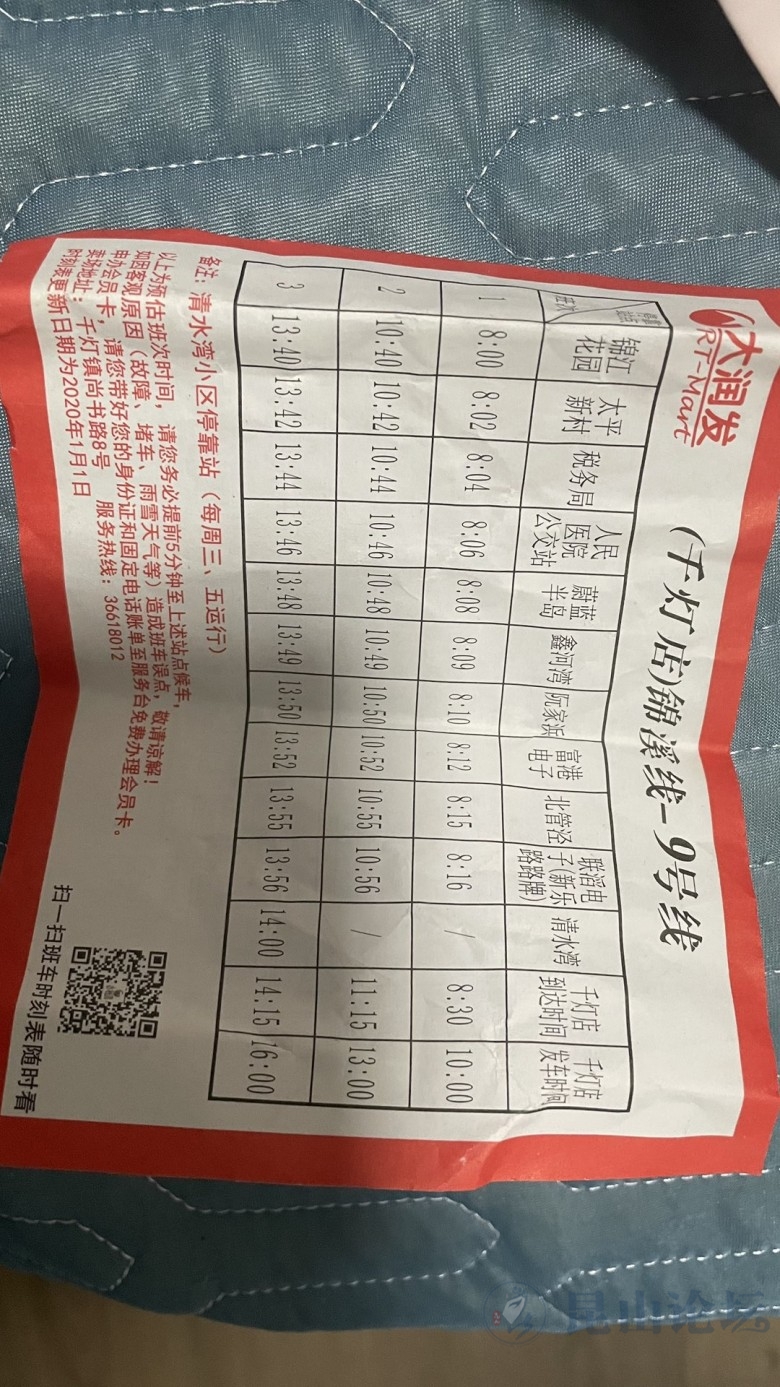 大润发
RT-Mart
(千灯店)锦溪线-9号线
锦江花园 太平新村 税务局 人民医院公交站 蔚蓝半岛 鑫河湾 阮家浜 富港电子 北管泾 联滔电子(新乐路路牌) 清水湾 千灯店到达时间 千灯店发车时间
1 8:00 8:02 8:04 8:06 8:08 8:09 8:10 8:12 8:15 8:16 / 8:30 10:00
2 10:40 10:42 10:44 10:46 10:48 10:49 10:50 10:52 10:55 10:56 / 11:15 13:00
3 13:40 13:42 13:44 13:46 13:48 13:49 13:50 13:52 13:55 13:56 14:00 14:15 16:00
备注：清水湾小区停靠站（每周三、五运行）
以上为预估班次时间，请您务必提前5分钟至上述站点候车，
如因客观原因（故障、堵车、雨雪天气等）造成班车误点，敬请谅解！
申办会员卡，请您带好您的身份证和固定电话账单至服务台免费办理会员卡。
卖场地址：千灯镇尚书路8号 服务热线：36618012
时刻表更新日期为2020年1月1日
扫一扫班车时刻表随时看
昆山论坛